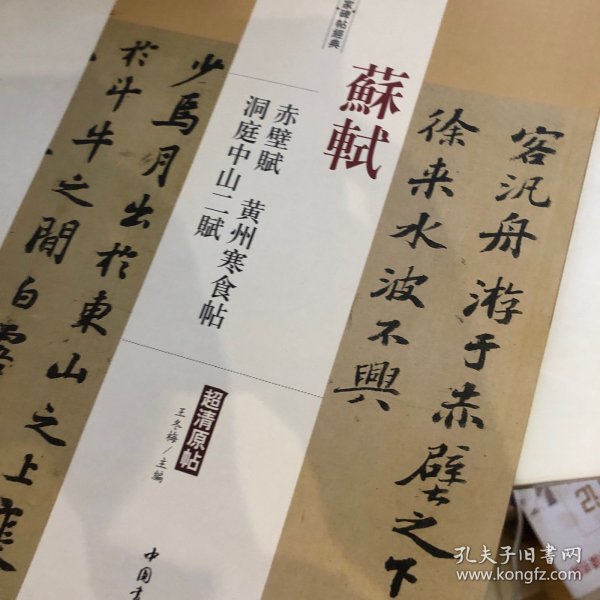 家碑帖經典
蘇軾
赤壁賦 黄州寒食帖
洞庭中山二賦
超清原帖
王冬梅/主編
中国
客汎舟游于赤壁之下
徐来水波不興
少焉月出於東山之上
於斗牛之間白露
孔夫子旧书网
www.kongfz.com